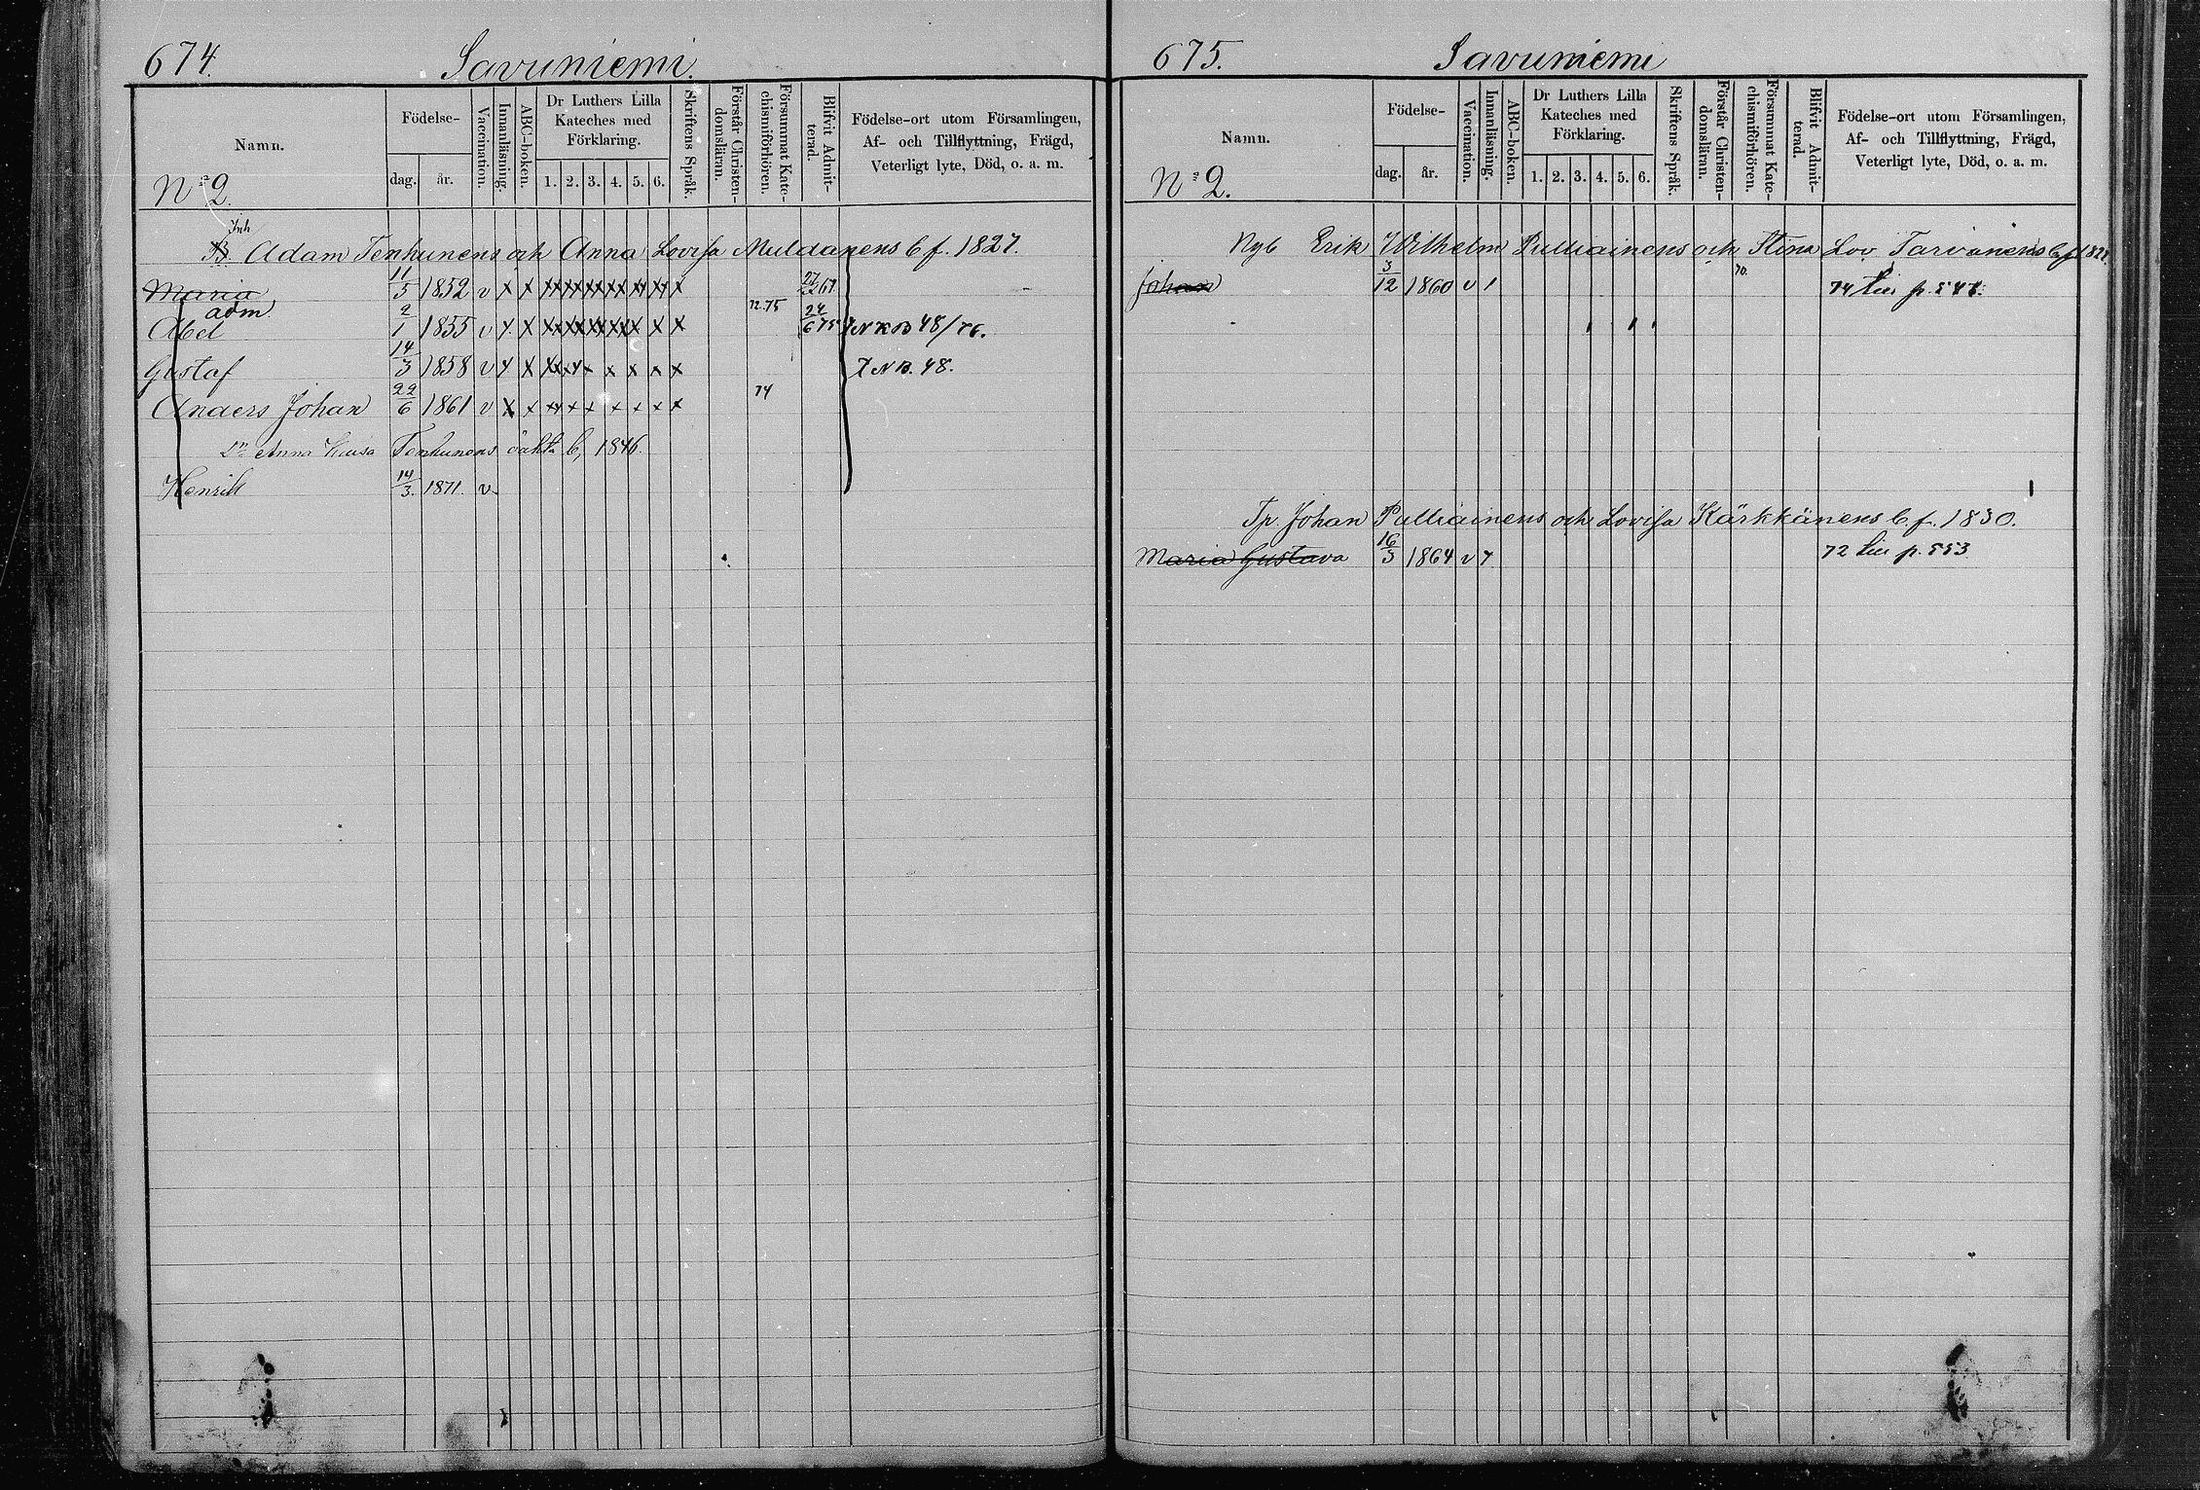 674. Savuniemi.
Namn.
Födelse-
dag. år.
Vaccination.
Innanläsning.
ABC-boken.
Dr Luthers Lilla Kateches med Förklaring.
1. 2. 3. 4. 5. 6.
Skriftens Språk.
Förstår Christendomsläran.
Försummat Katechismiförhören.
Blifvit Admitterad.
Födelse-ort utom Församlingen,
Af- och Tillflyttning, Frägd,
Veterligt lyte, Död, o. a. m.
No 2.
Inh
Adam Tenhunens och Anna Lovisa Muldanens b f. 1827.
Maria 11/5 1852 v x x x x x x x x x 67
adm.
Abel 2/1 1855 v x x x x x x x x x 72.75 24/6 75 48/76.
Gustaf 14/3 1858 v x x x x x x x x x N B. 48.
Anders Johan 22/6 1861 v x x x x x x x x x 74
Anna Tenhunens b, 1846.
Henrik 14/3. 1871. v.
675. Savuniemi
Namn.
Födelse-
dag. år.
Vaccination.
Innanläsning.
ABC-boken.
Dr Luthers Lilla Kateches med Förklaring.
1. 2. 3. 4. 5. 6.
Skriftens Språk.
Förstår Christendomsläran.
Försummat Katechismiförhören.
Blifvit Admitterad.
Födelse-ort utom Församlingen,
Af- och Tillflyttning, Frägd,
Veterligt lyte, Död, o. a. m.
No 2.
Nyb Erik Wilhelm Pulliainens och Stina Lov. Tarvanens b f
Johan 3/12 1860 v 70. 74 p.
Tp. Johan Pulliainens och Lovisa Kärkkänens b. f. 1830.
Maria Gustava 16/3 1864 v 72 p. 553